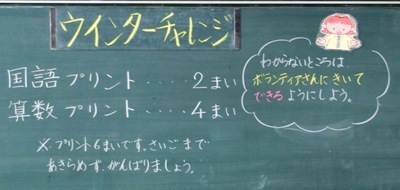 ウインターチャレンジ
国語プリント‥‥2まい
算数プリント‥‥4まい
※プリント6まいです。さいごまで
あきらめず、がんばりましょう。
わからないところは
ボランティアさんにきいて
できるようにしよう。